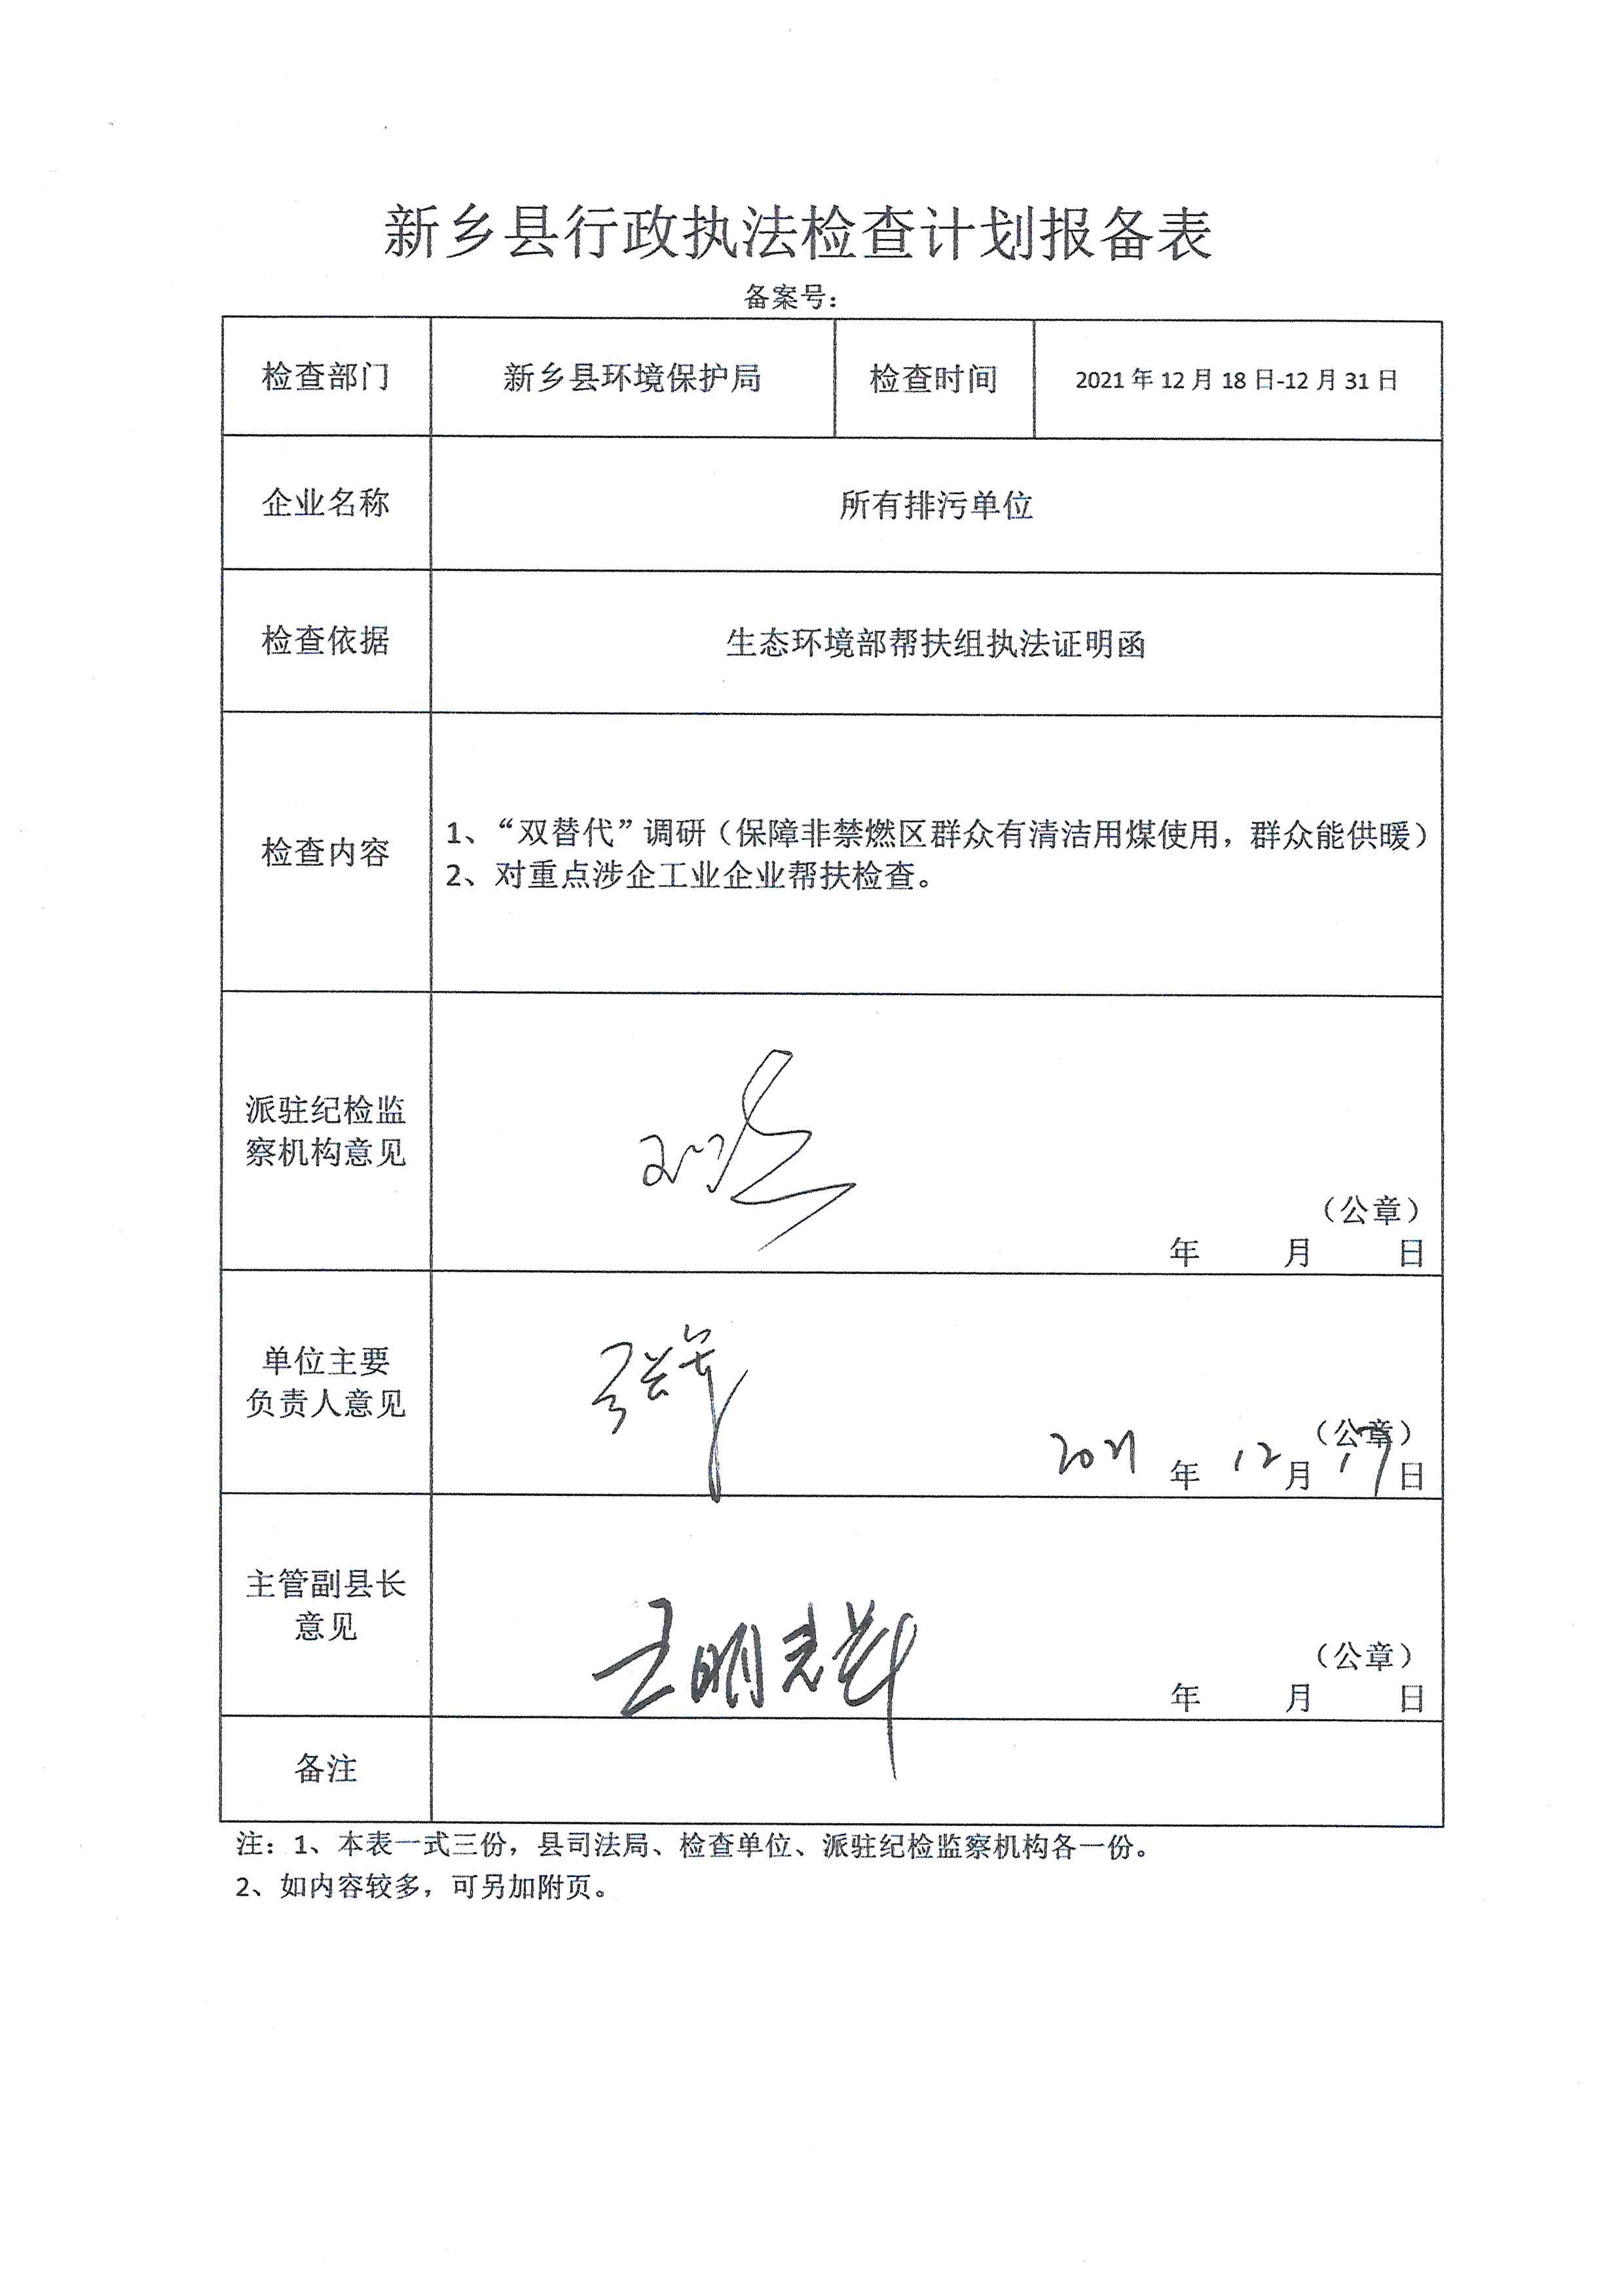 新乡县行政执法检查计划报备表
备案号：
检查部门 新乡县环境保护局 检查时间 2021年12月18日-12月31日
企业名称 所有排污单位
检查依据 生态环境部帮扶组执法证明函
检查内容
1、“双替代”调研（保障非禁燃区群众有清洁用煤使用，群众能供暖）
2、对重点涉企工业企业帮扶检查。
派驻纪检监
察机构意见
（公章）
年 月 日
单位主要
负责人意见
（公章）
2021 年 12 月 17 日
主管副县长
意见
（公章）
年 月 日
备注
注：1、本表一式三份，县司法局、检查单位、派驻纪检监察机构各一份。
2、如内容较多，可另加附页。